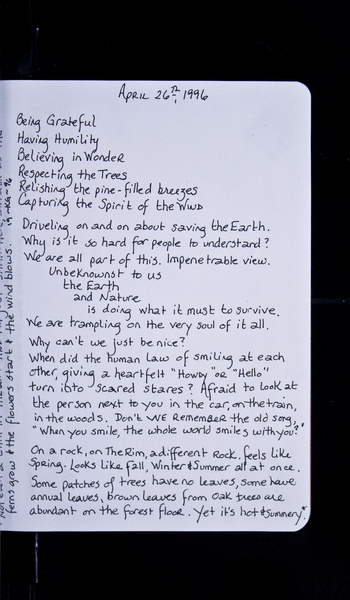 April 26th, 1996
Being Grateful
Having Humility
Believing in Wonder
Respecting the Trees
Relishing the pine-filled breezes
Capturing the Spirit of the Wind
Driveling on and on about saving the Earth.
Why is it so hard for people to understand?
We are all part of this. Impenetrable view.
Unbeknownst to us
the Earth
and Nature
is doing what it must to survive.
We are trampling on the very soul of it all.
Why can't we just be nice?
When did the human law of smiling at each
other, giving a heartfelt "Howdy" or "Hello"
turn into scared stares? Afraid to look at
the person next to you in the car, on the train,
in the woods. Don't we remember the old song,
"When you smile, the whole world smiles with you?"
On a rock, on The Rim, a different Rock. feels like
Spring. Looks like fall, Winter & Summer all at once.
Some patches of trees have no leaves, some have
annual leaves, brown leaves from oak trees are
abundant on the forest floor. Yet it's hot & summery.
ferns grow & the flowers start & the wind blows.